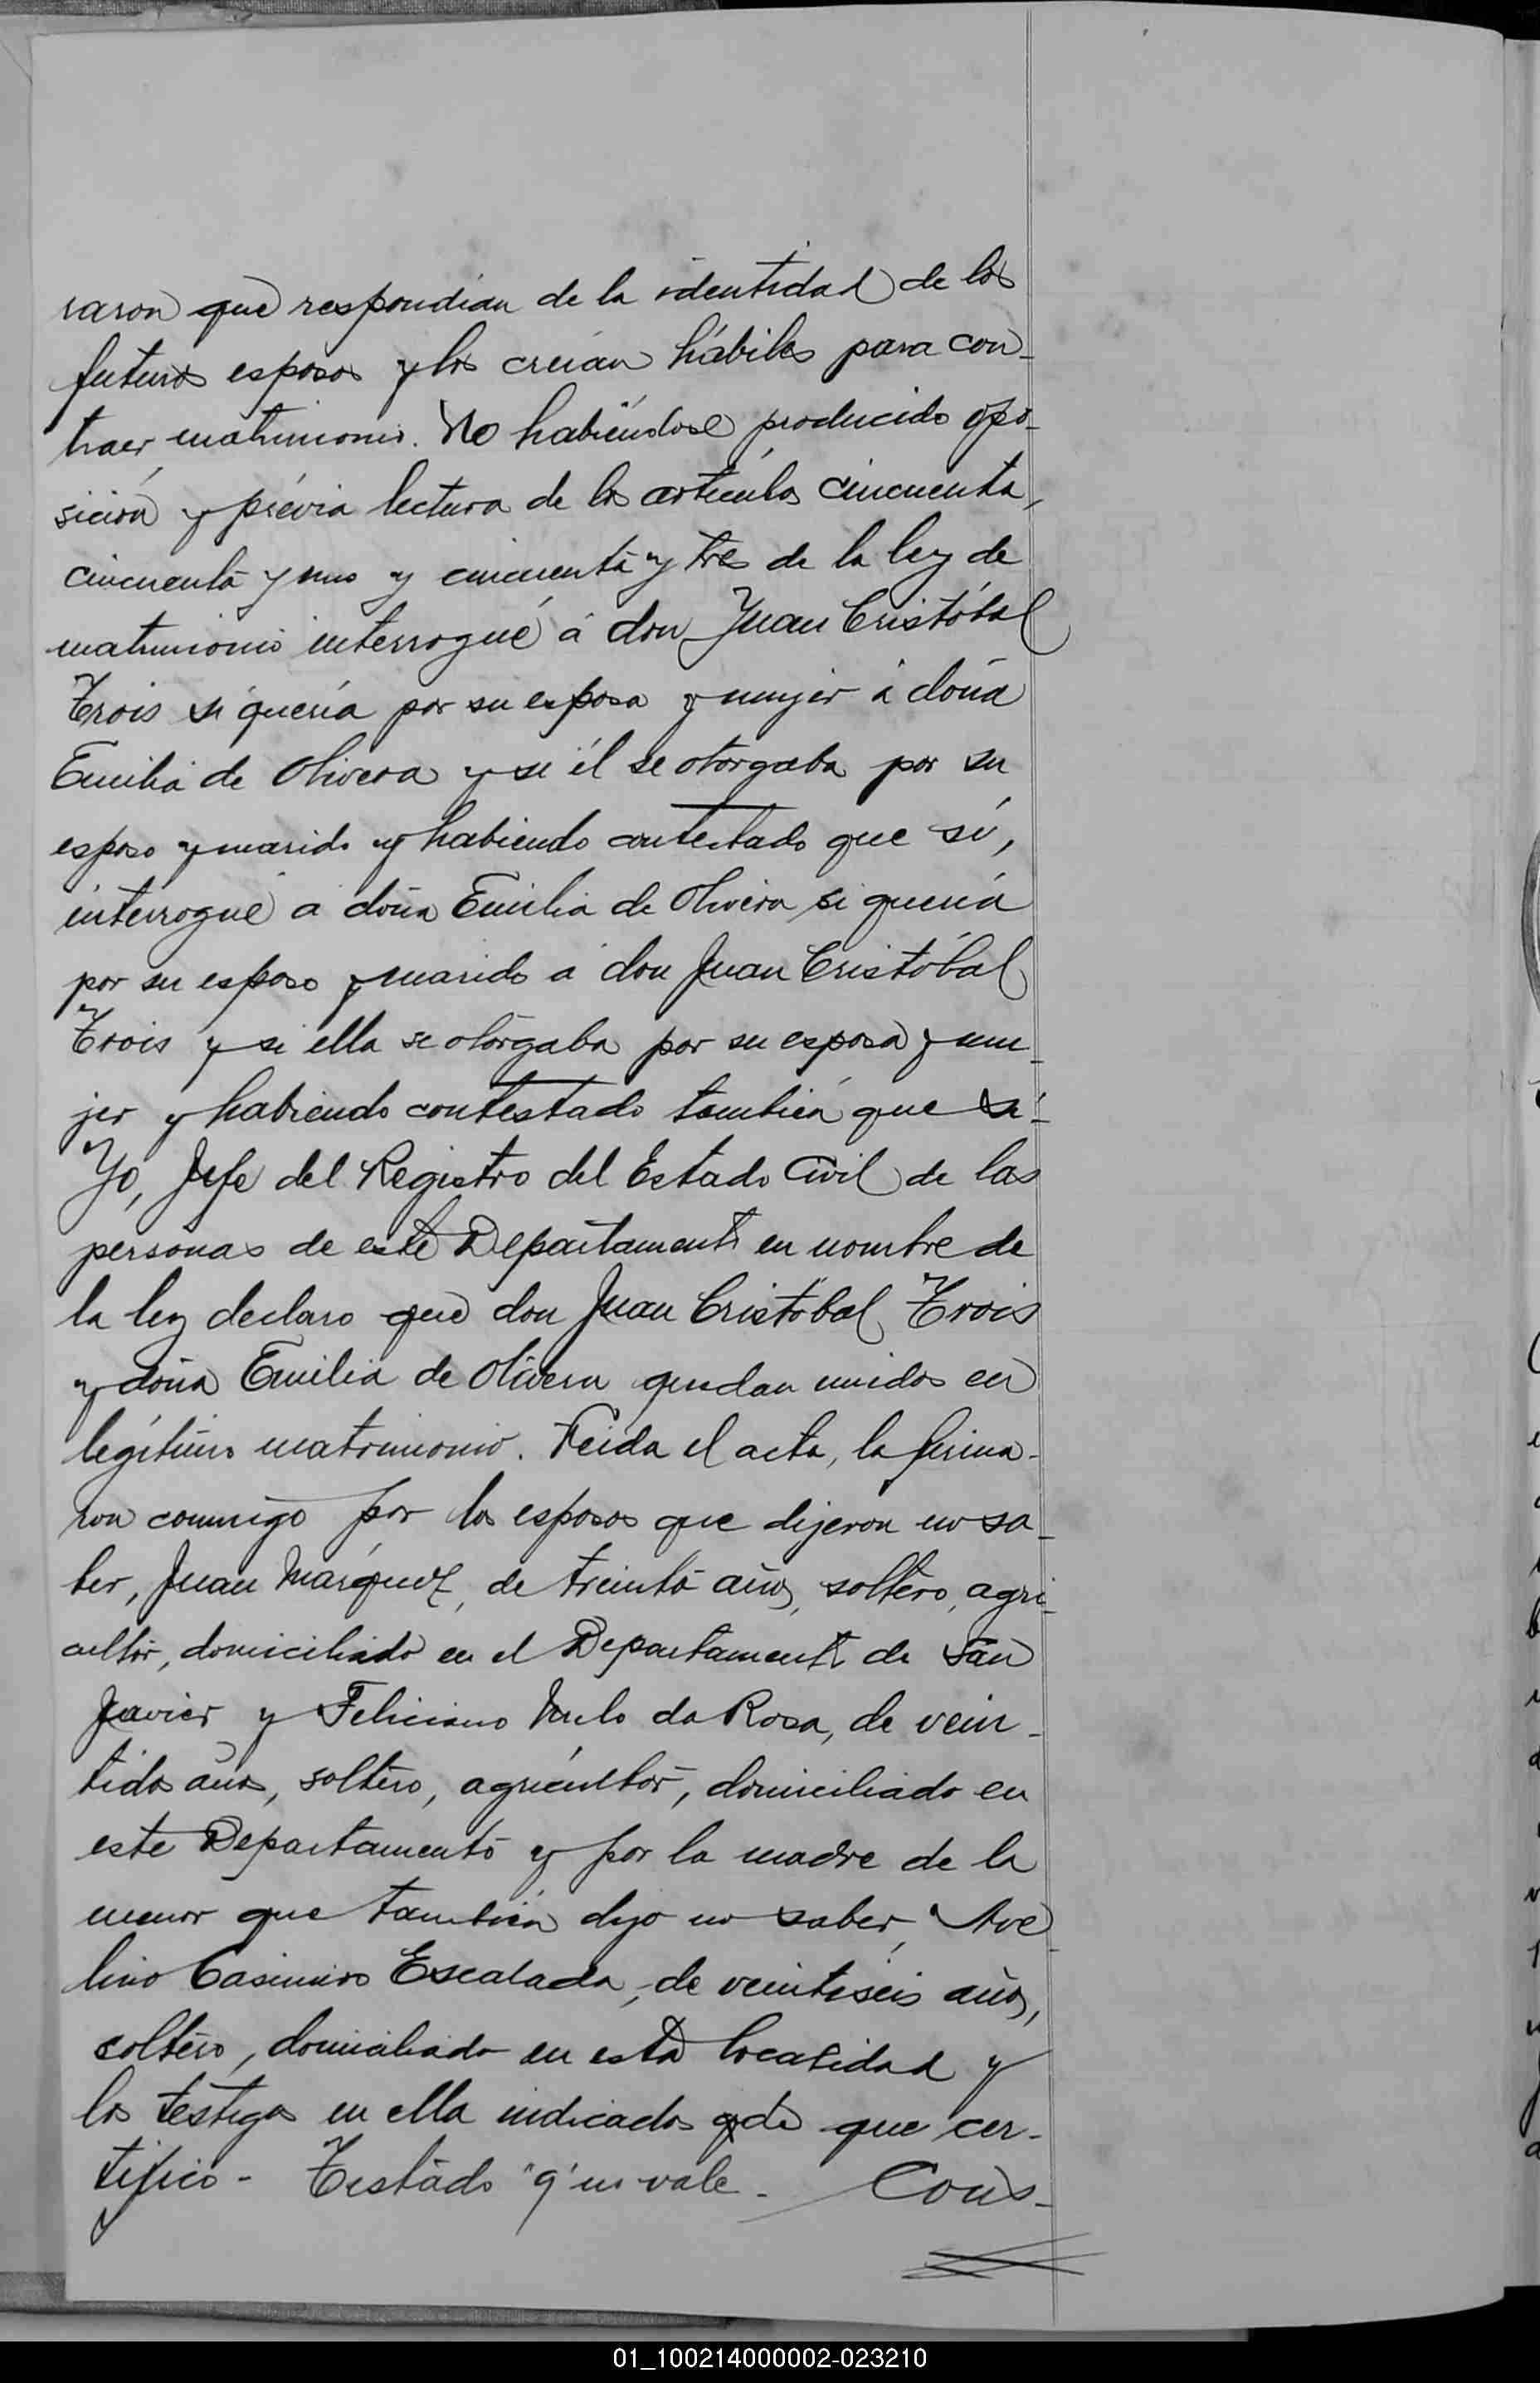 raron que respondían de la identidad de los
futuros esposos y los creían hábiles para con-
traer matrimonio. No habiéndose producido opo-
sición y prévia lectura de los artículos cincuenta,
cincuenta y uno y cincuenta y tres de la ley de
matrimonio interrogué á don Juan Cristóbal
Trois si quería por su esposa y mujer á doña
Emilia de Olivera y si él se otorgaba por su
esposo y marido y habiendo contestado que sí,
interrogué á doña Emilia de Olivera si quería
por su esposo y marido á don Juan Cristóbal
Trois y si ella se otorgaba por su esposa y mu-
jer y habiendo contestado también que sí-
Yo, Jefe del Registro del Estado Civil de las
personas de este Departamento en nombre de
la ley declaro que don Juan Cristóbal Trois
y doña Emilia de Olivera quedan unidos en
legítimo matrimonio. Leida el acta, la firma-
ron conmigo por los esposos que dijeron no sa-
ber, Juan Marquez, de treinta años, soltero, agri-
cultor, domiciliado en el Departamento de San
Javier y Feliciano Melo da Rosa, de vein-
tidos años, soltero, agricultor, domiciliado en
este Departamento y por la madre de la
menor que también dijo no saber, Ave
lino Casimiro Escalada, de veintiseis años,
soltero, domiciliado en esta localidad y
los testigos en ella indicados q de que cer-
tifico - Testado "q" no vale - Cons-
01_100214000002-023210